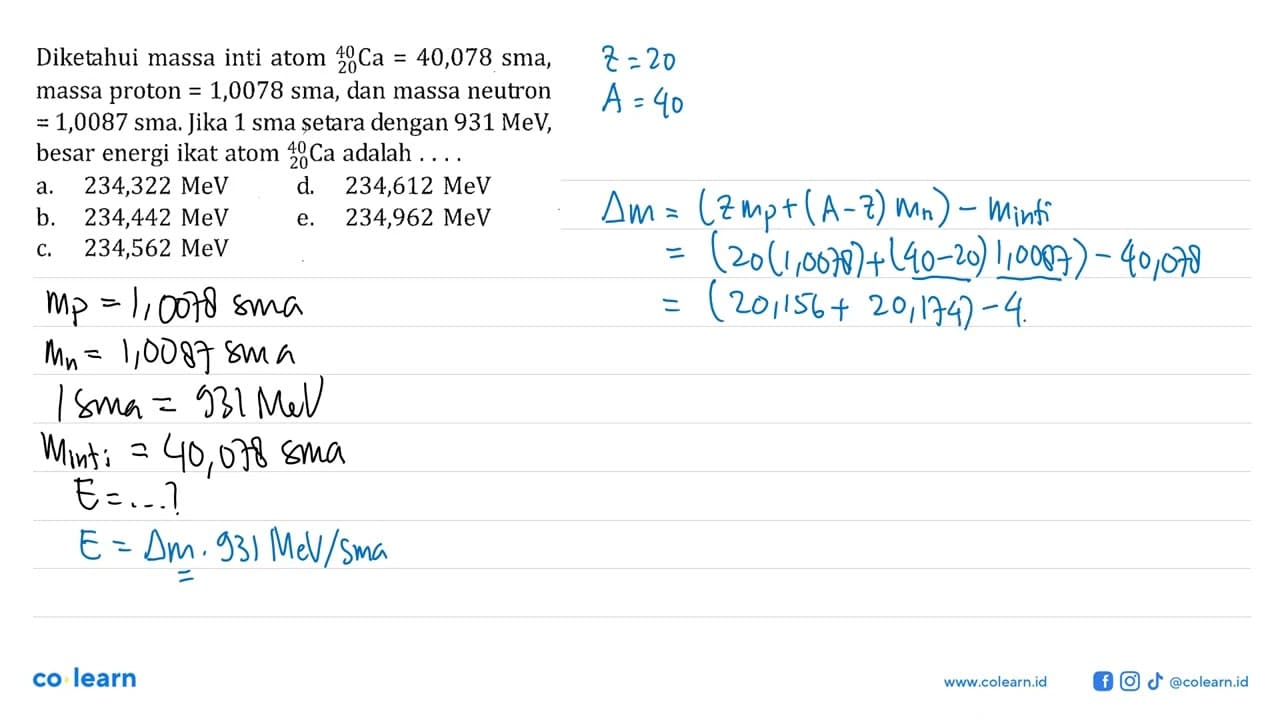 Diketahui massa inti atom ⁴⁰₂₀Ca = 40,078 sma,
massa proton = 1,0078 sma, dan massa neutron
= 1,0087 sma. Jika 1 sma setara dengan 931 MeV,
besar energi ikat atom ⁴⁰₂₀Ca adalah . . . .
a. 234,322 MeV d. 234,612 MeV
b. 234,442 MeV e. 234,962 MeV
c. 234,562 MeV
mp = 1,0078 sma
mn = 1,0087 sma
1 sma = 931 MeV
Minti = 40,078 sma
E = ...?
E = Δm . 931 MeV/sma
z = 20
A = 40
Δm = (z mp + (A - z) mn) - minti
= (20(1,0078) + (40-20) 1,0087) - 40,078
= (20,156 + 20,174) - 4
co learn
www.colearn.id @colearn.id